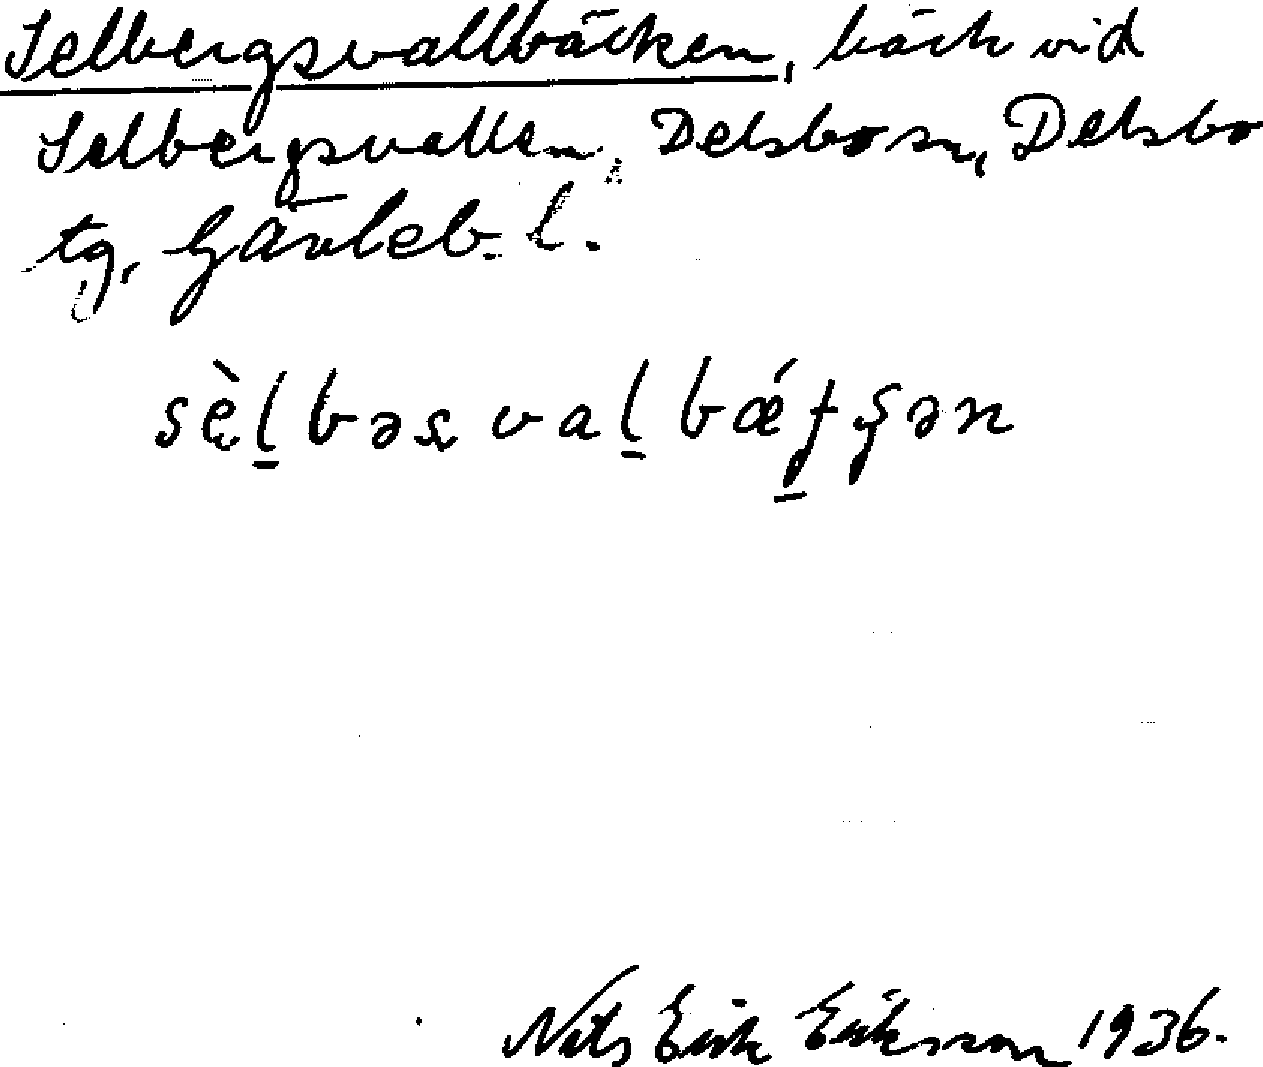 Selbergsvallbäcken, bäck vid
Selbergsvallen, Delsbo sn, Delsbo
tg, Gävleb. l.
sèḻbəsvaḻbǽƫʂən
Nils Erik Eriksson 1936.